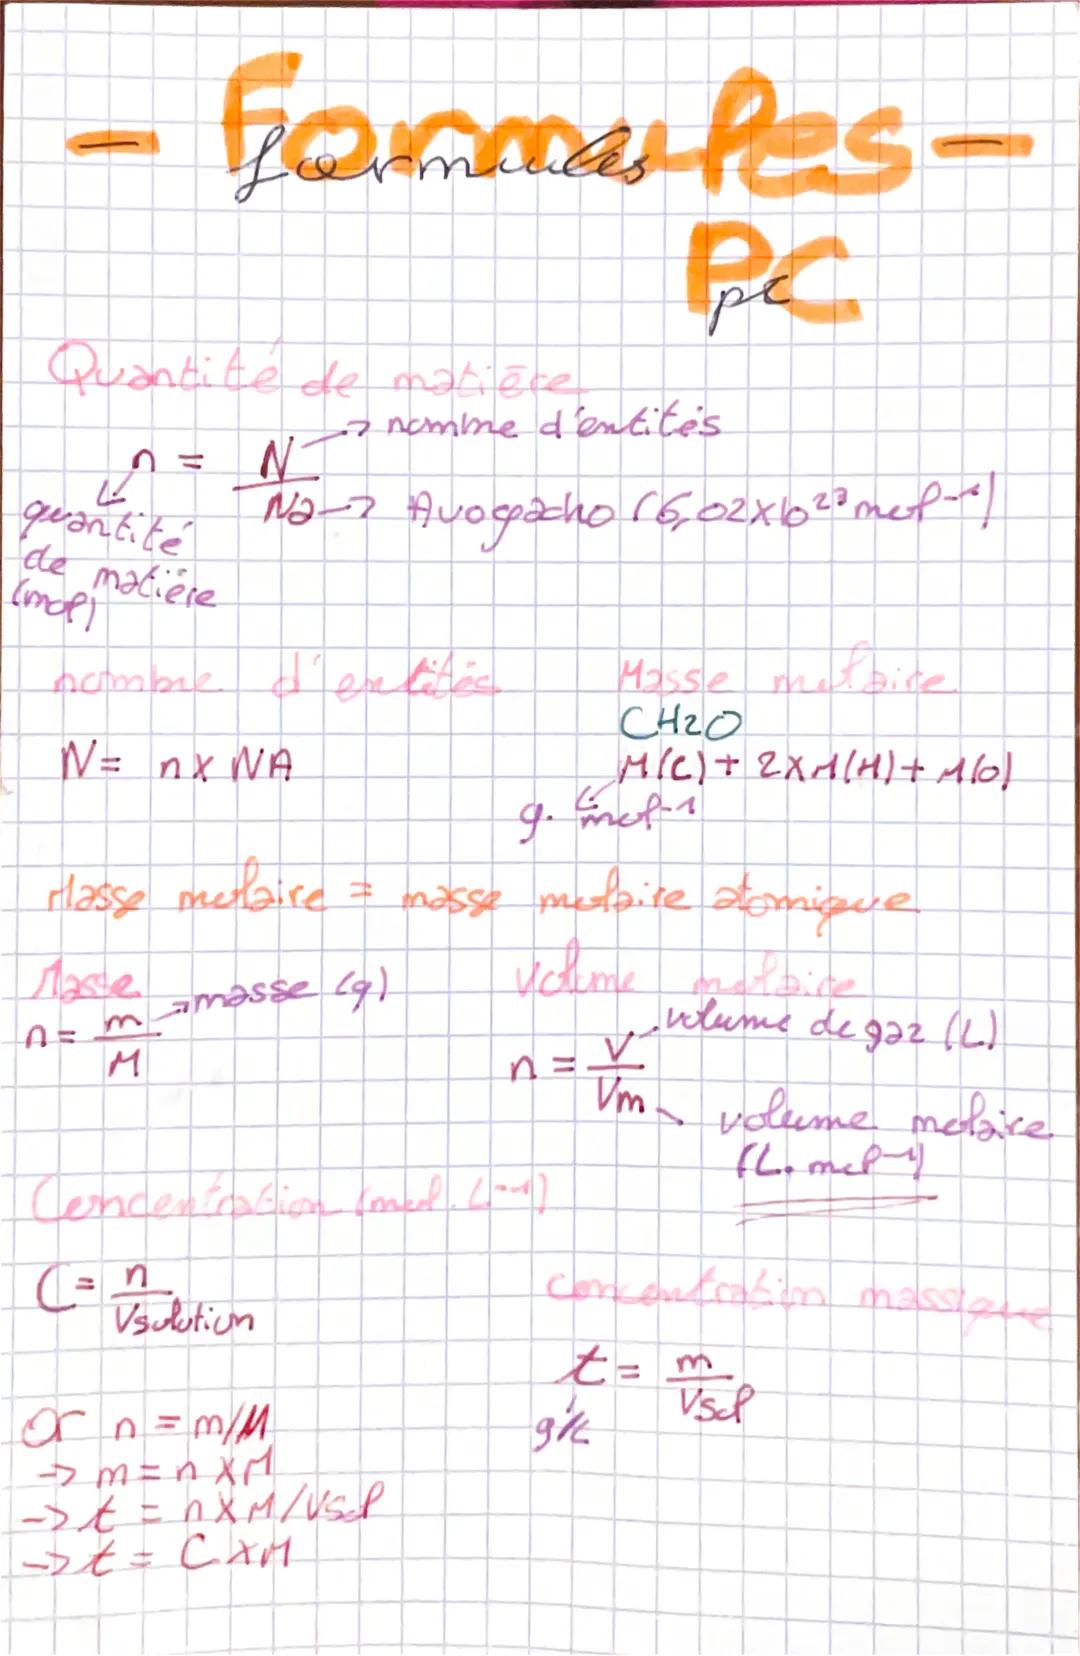 - Formules -
formules
PC
pc
Quantité de matière
n = N/Na
→ nomme d'entités
→ Avogacho (6,02x10²³ mol⁻¹)
quantité
de matière
(mol)
nombre d'entités
N = n x NA
Masse molaire
CH2O
M(C) + 2xM(H) + M(O)
g. mol-1
Masse molaire = masse molaire atomique
Masse
n = m/M
→ masse (g)
Volume molaire
n = V/Vm
volume de gaz (L)
volume molaire
(L. mol-1)
Concentration (mol. L-1)
C = n/Vsolution
concentration massique
t = m/Vsol
g/L
Or n = m/M
→ m = n x M
→ t = n x M/Vsol
→ t = C x M